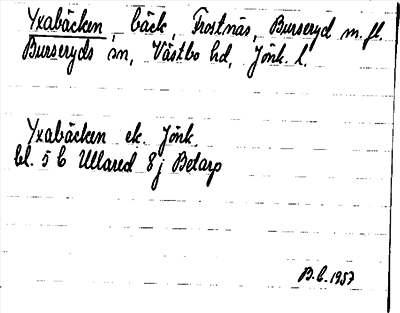 Yxabäcken, bäck, Frostnäs, Burseryd m. fl.
Burseryds sn, Västbo hd, Jönk. l.
Yxabäcken ek. Jönk.
bl. 5 C Ullared 8 j Betarp
B.C. 1957